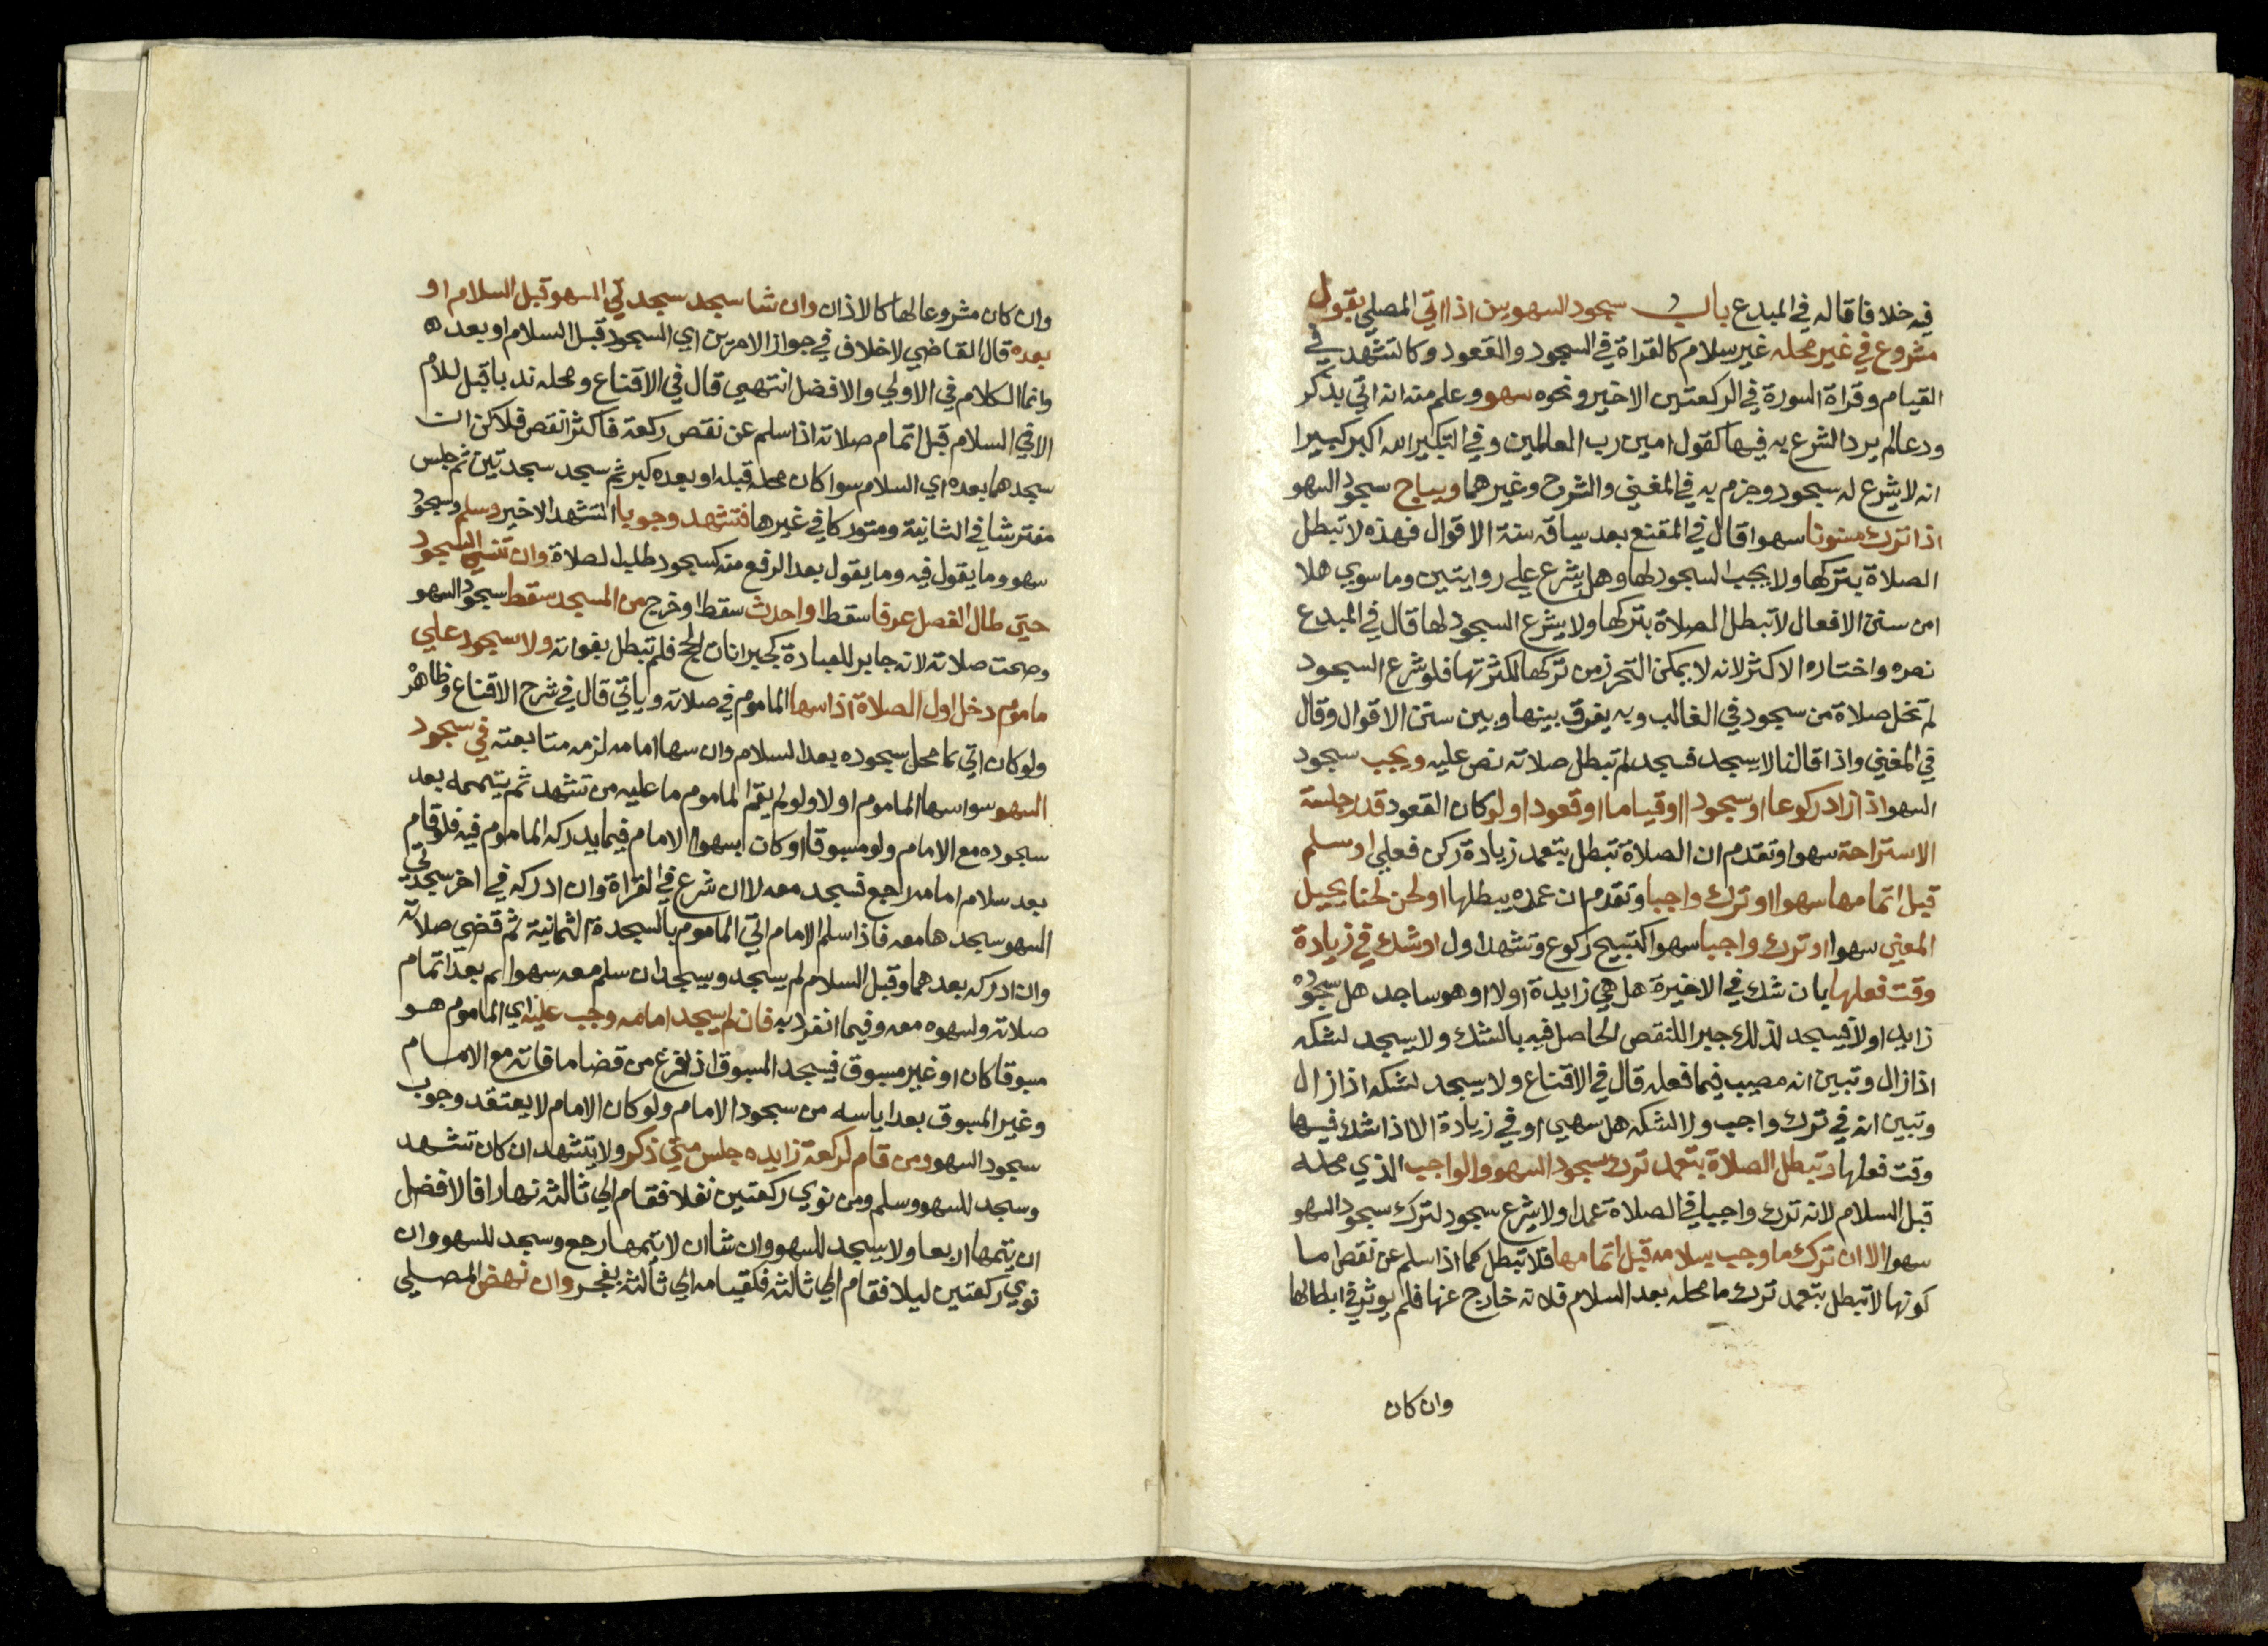 فيه خلافا قاله في المبدع باب سجود السهو يسن اذا اتي المصلي بقول
مشروع في غير محله غير سلام كالقراة في السجود والقعود وكالتشهد في
القيام وقراة السورة في الركعتين الاخير ونحوه سهو وعلم منه انه اتي بذكر
ودعا لم يرد الشرع به فيها كقول امين رب العالمين وفي التكبير الله اكبر كبيرا
انه لا يشرع له سجود وجزم به في المغني والشرح وغيرهما ويباح سجود السهو
اذا ترك مسنونا سهوا قال في المقنع بعد سياقه سنة الاقوال فهذه لا تبطل
الصلاة بتركها ولا يجب السجود لها وهل يشرع علي روايتين وما سوي هلا
امن سنن الافعال لا تبطل الصلاة بتركها ولا يشرع السجود لها قال في المبدع
نصره واختاره الاكثر لانه لا يمكن التحرز من تركها لكثرتها فلو شرع السجود
لم تخل صلاة من سجود في الغالب وبه يفرق بينها وبين سنن الاقوال وقال
في المغني واذا قالنا لا يسجد فسجد لم تبطل صلاته نص عليه ويجب سجود
السهو اذ ازاد ركوعا او سجودا او قياما او قعودا ولو كان القعود قدر جلسة
الاستراحة سهوا وتقدم ان الصلاة تبطل بتعمد زيادة ركن فعلي او سلم
قبل اتمامها سهوا او ترك واجبا وتقدم ان عمده يبطلها او لحن لحنا يحيل
المعني سهوا او ترك واجبا سهوا كتسبيح ركوع وتشهد اول او شك في زيادة
وقت فعلها بان شك في الاخيرة هل هي زايدة اولا او هو ساجد هل سجوده
زايد اولا فيسجد لذلك جبرا للنقص الحاصل فيه بالشك ولا يسجد لشكه
اذا زال وتبين انه مصيب فيما فعله قال في الاقناع ولا يسجد لشكه اذا زال
وتبين انه في ترك واجب ولا لشكه هل سهي او في زيادة الا اذا شك فيها
وقت فعلها وتبطل الصلاة بتعمد ترك سجود السهو الواجب الذي محله
قبل السلام لانه ترك واجبا في الصلاة عمدا ولا يشرع سجود لترك سجود السهو
سهوا الا ان ترك ما وجب بسلامه قبل اتمامها فلا تبطل كما اذا سلم عن نقص اما
كونها لا تبطل بتعمد ترك ما محله بعد السلام فلانه خارج عنها فلم يوثر في ابطالها
وان كان
وان كان مشروعا لها كالاذان وان شا سجد سجدتي السهو قبل السلام او
بعده قال القاضي لا خلاف في جواز الامرين اي السجود قبل السلام او بعده
وانما الكلام في الاولي والافضل انتهي قال في الاقناع ومحله ندبا قبل للام
الا في السلام قبل اتمام صلاته اذا سلم عن نقص ركعة فاكثر انقص فلا كن ان
سجدهما بعده اي السلام سوا كان محله قبله او بعده كبر ثم سجد سجدتين ثم جلس
مفترشا في الثانية ومتوركا في غيرها فتشهد وجوبا التشهد الاخير وسلم وسجود
سهو وما يقول فيه وما يقول بعد الرفع منه كسجود طلب الصلاة وان نسي السجود
حتي طال الفصل عرفا سقط او احدث سقط او خرج من المسجد سقط سجود السهو
وصحت صلاته لانه جابر للعبادة كجبرانات الحج فلم تبطل بفواته ولا سجود علي
ماموم دخل اول الصلاة اذا سها الماموم في صلاته وياتي قال في شرح الاقناع وظاهره
ولو كان اتي بما محل سجوده بعد السلام وان سها امامه لزمه متابعته في سجود
السهو سوا سها الماموم اولا ولو لم يقم الماموم ما عليه من تشهد ثم يتممه بعد
سجوده مع الامام ولو مسبوقا او كان سهو الامام فيما يدركه الماموم فيه فلو قام
بعد سلام امامه رجع فسجد معه لا ان شرع في القراة وان ادركه في اخر سجدتي
السهو سجدها معه فاذا سلم الامام اتي الماموم بالسجدة الثمانية ثم قضي صلاته
وان ادركه بعدهما وقبل السلام لم يسجد ويسجد ان سلم معه سهوا ثم بعد اتمام
صلاته ولسهوه معه وفيما انفرد به فان لم يسجد امامه وجب عليه اي الماموم هو
مسبوقا كان او غير مسبوق فيسجد المسبوق اذا فرغ من قضا ما فاته مع الامام
وغير المسبوق بعد اياسه من سجود الامام ولو كان الامام لا يعتقد وجوب
سجود السهو ومن قام لركعة زايده جلس متي ذكر ولا يتشهد ان كان تشهد
وسجد للسهو وسلم ومن نوي ركعتين نفلا فقام الي ثالثة نهارا فالافضل
ان يتمها اربعا ولا يسجد للسهو وان شا ان لا يتمها رجع وسجد للسهو وان
نوي ركعتين ليلا فقام الي ثالثه فلقيامه الي ثالثة بفجر وان نهض المصلي